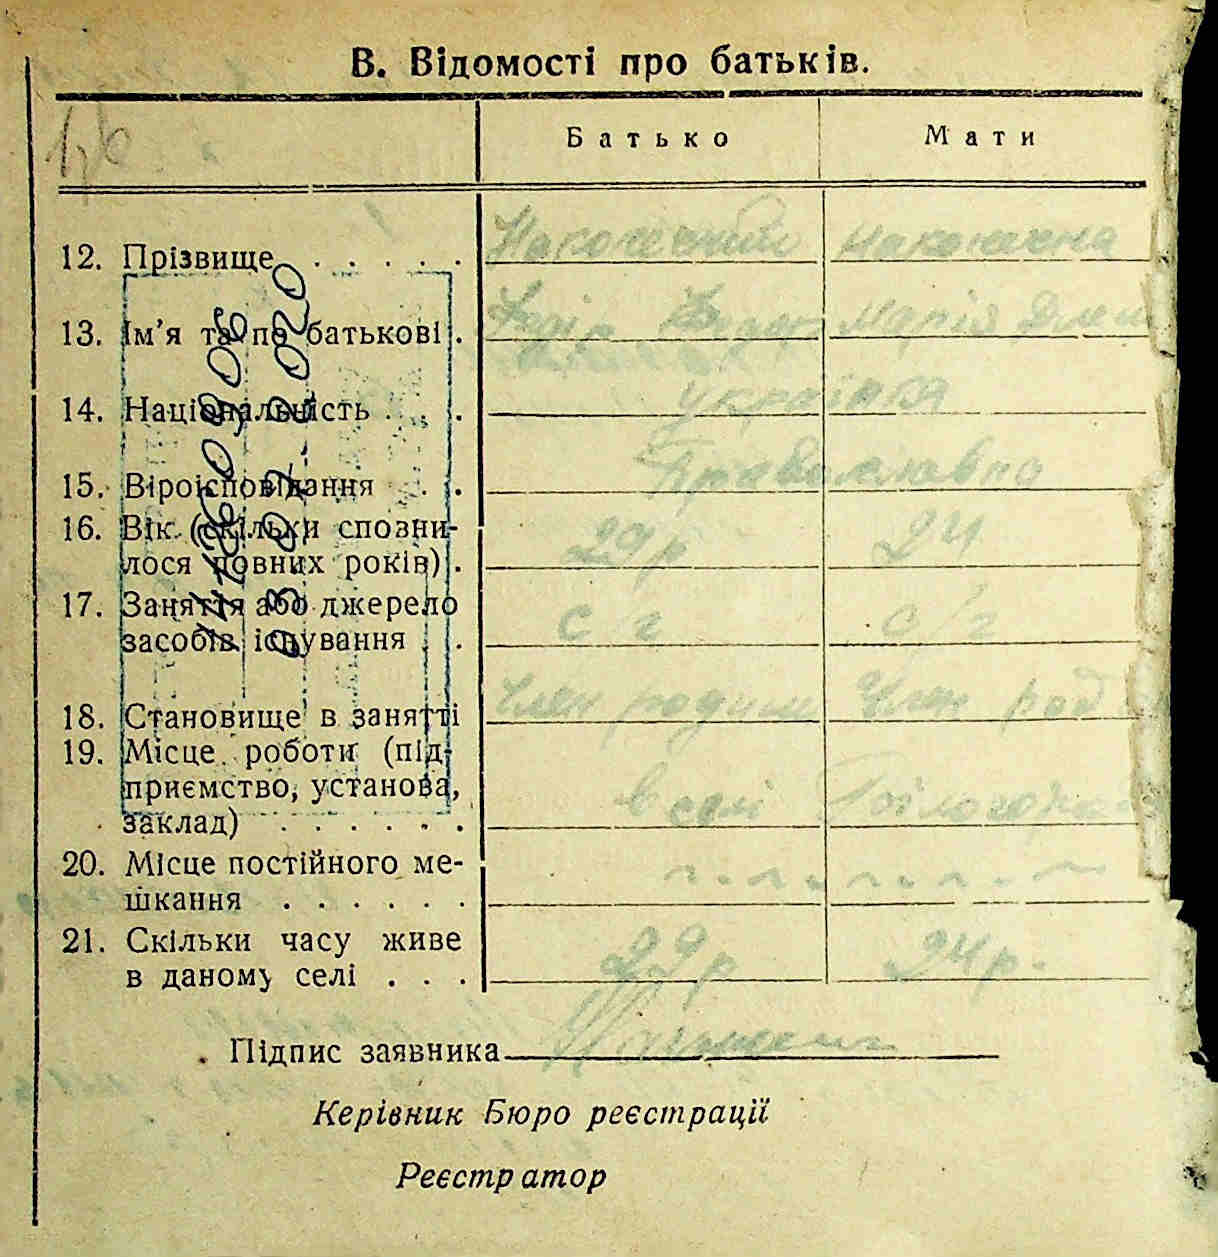 В. Відомості про батьків.
Батько Мати
12. Прізвище . . . . . Наконечний Наконечна
13. Ім'я та по батькові . Марія
14. Національність . . . українця
15. Віроісповідання . . . Православна
16. Вік (скільки сповни-
лося повних років) . 29 р 24
17. Заняття або джерело
засобів існування . . с/г с/г
18. Становище в занятті Член родини Член род
19. Місце роботи (під-
приємство, установа,
заклад) . . . . . . в селі
20. Місце постійного ме-
шкання . . . . . .
21. Скільки часу живе
в даному селі . . . 29 р 24 р.
Підпис заявника
Керівник Бюро реєстрації
Реєстратор